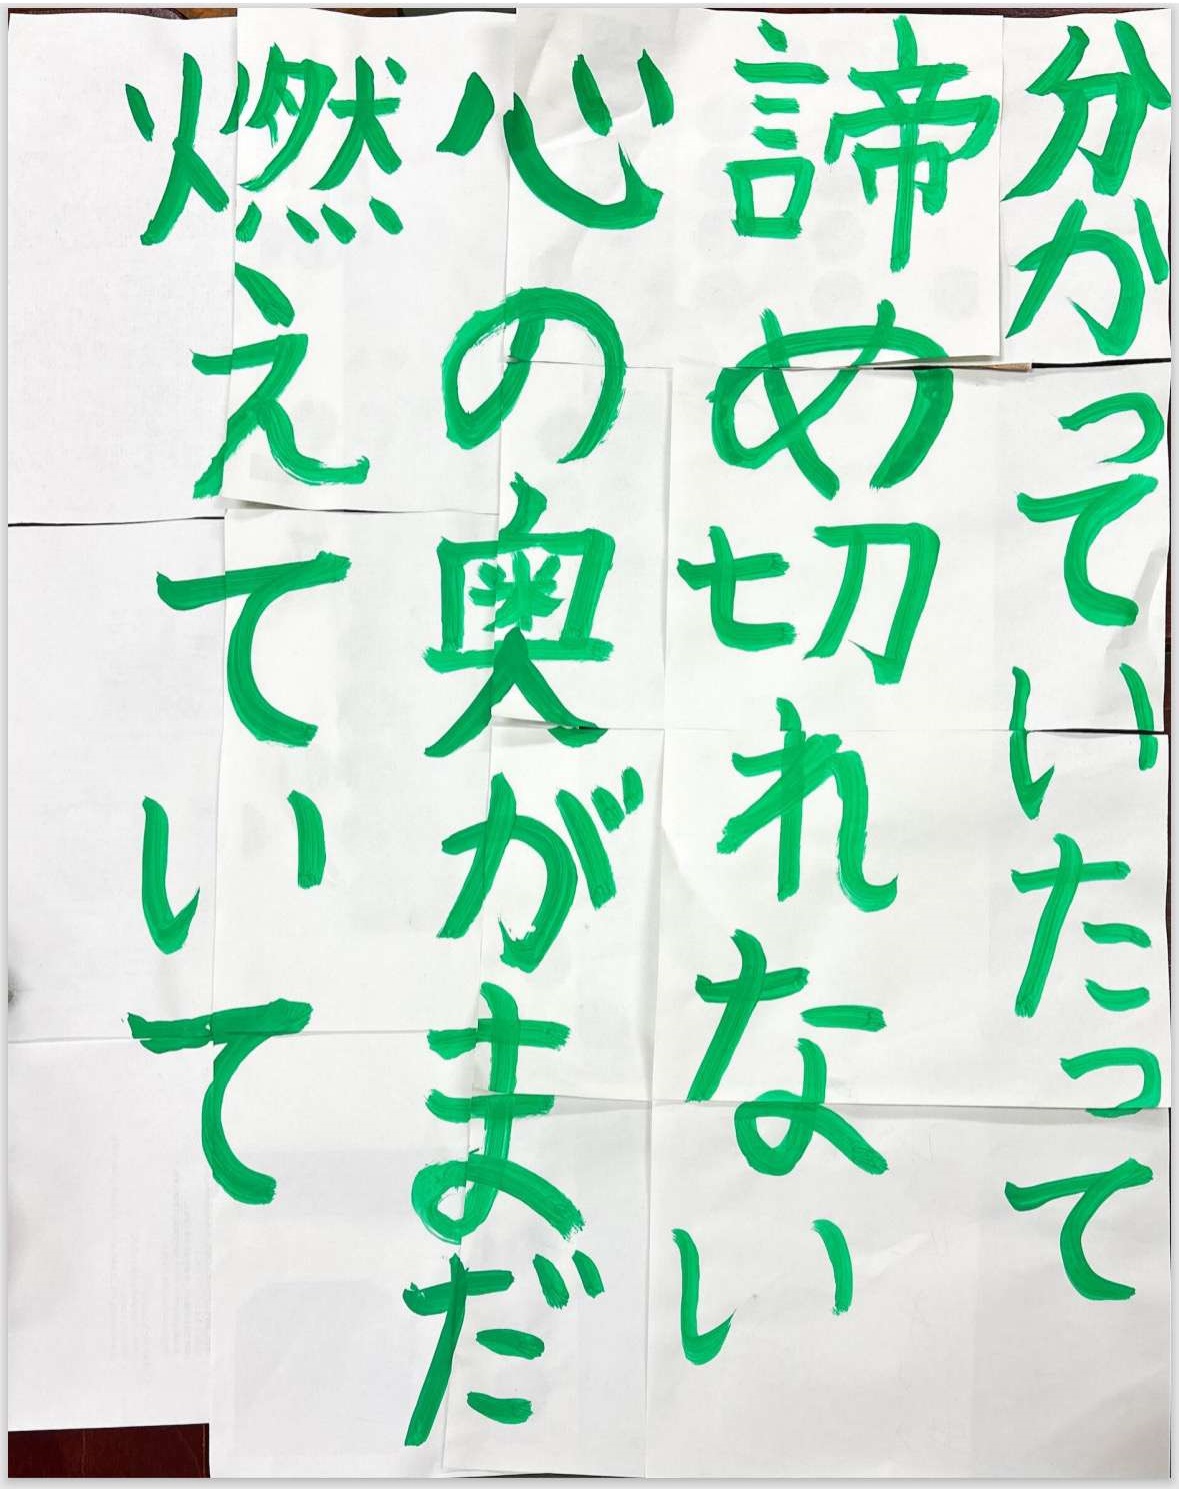 分がっていたって
諦め切れない
心の奥がまだ
燃えていて